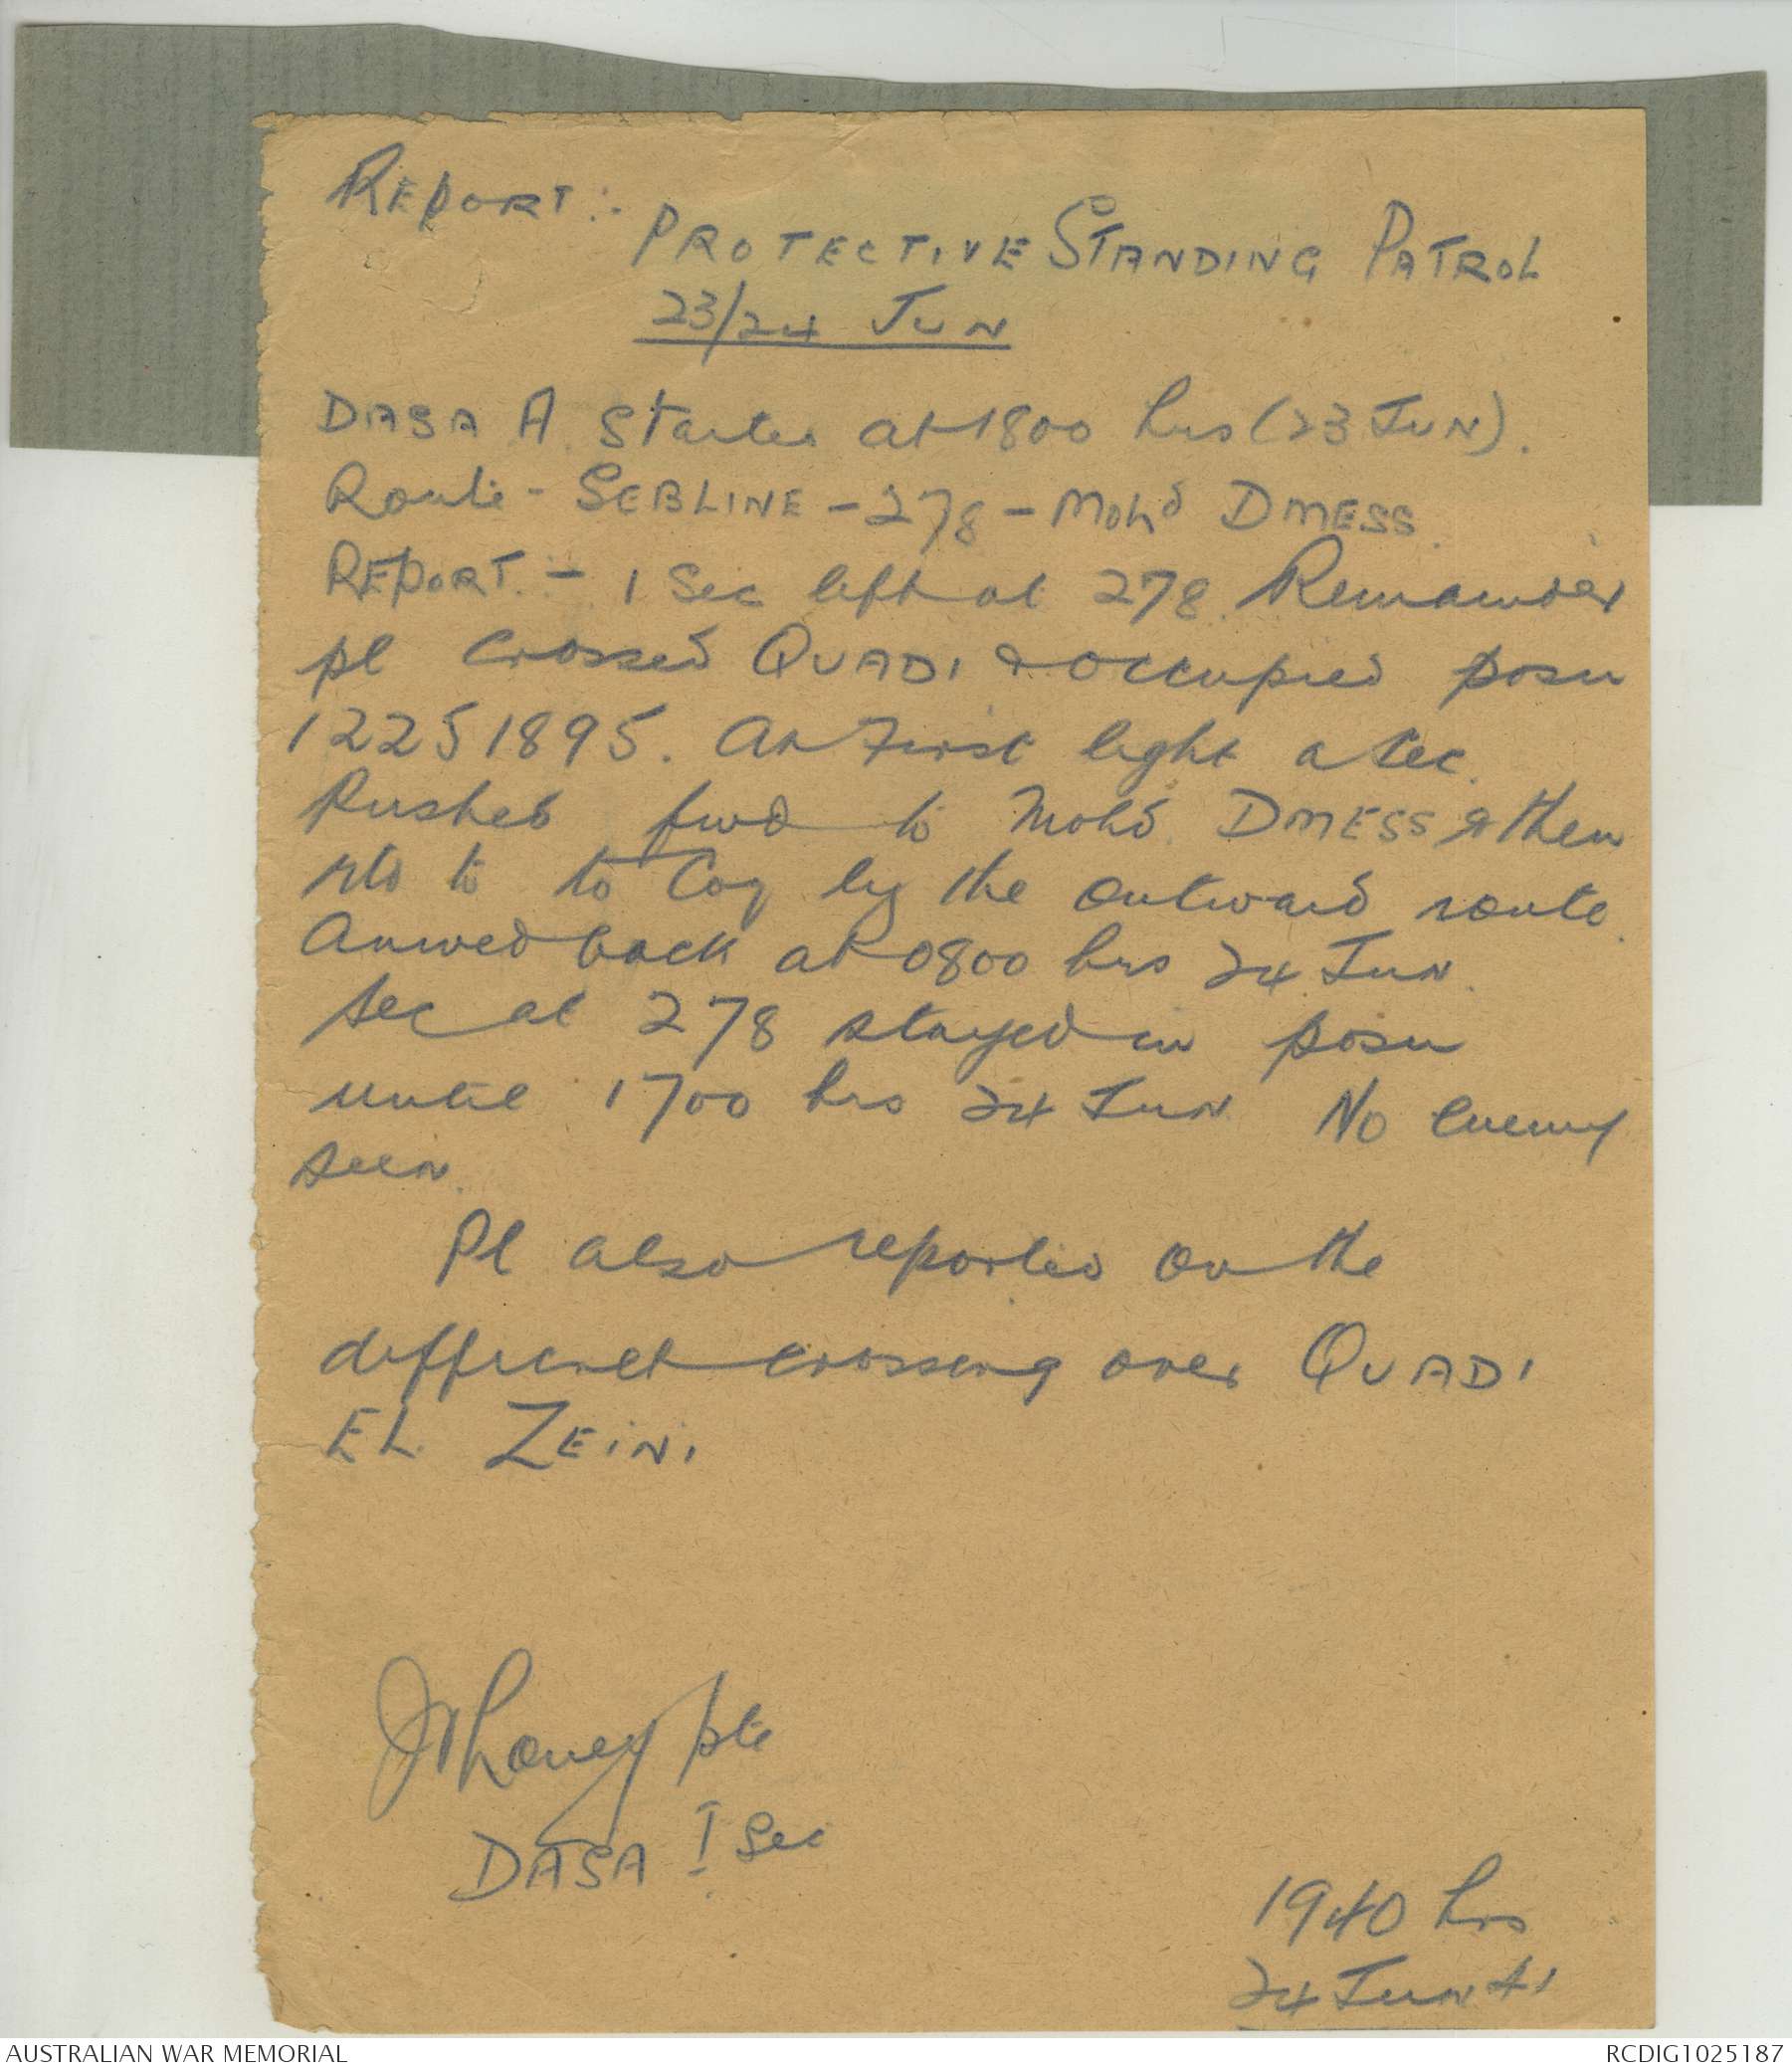 REPORT:-
PROTECTIVE STANDING PATROL
23/24 JUN
DASA A started at 1800 hrs (23 JUN).
Route - SEBLINE - 278 - Mohd DMESS.
REPORT:- 1 Sec left at 278. Remainder
pl crossed QUADI & occupied posn
12251895. At First light a sec.
Pushed fwd to Mohd. DMESS & then
rtd to to Coy by the outward route.
Arrived back at 0800 hrs 24 Jun.
Sec at 278 stayed in posn
until 1700 hrs 24 Jun No enemy
seen.
Pl also reported on the
difficult crossing over QUADI
EL ZEINI
pte
DASA I Sec
1940 hrs
24 Jun 41
AUSTRALIAN WAR MEMORIAL
RCDIG1025187